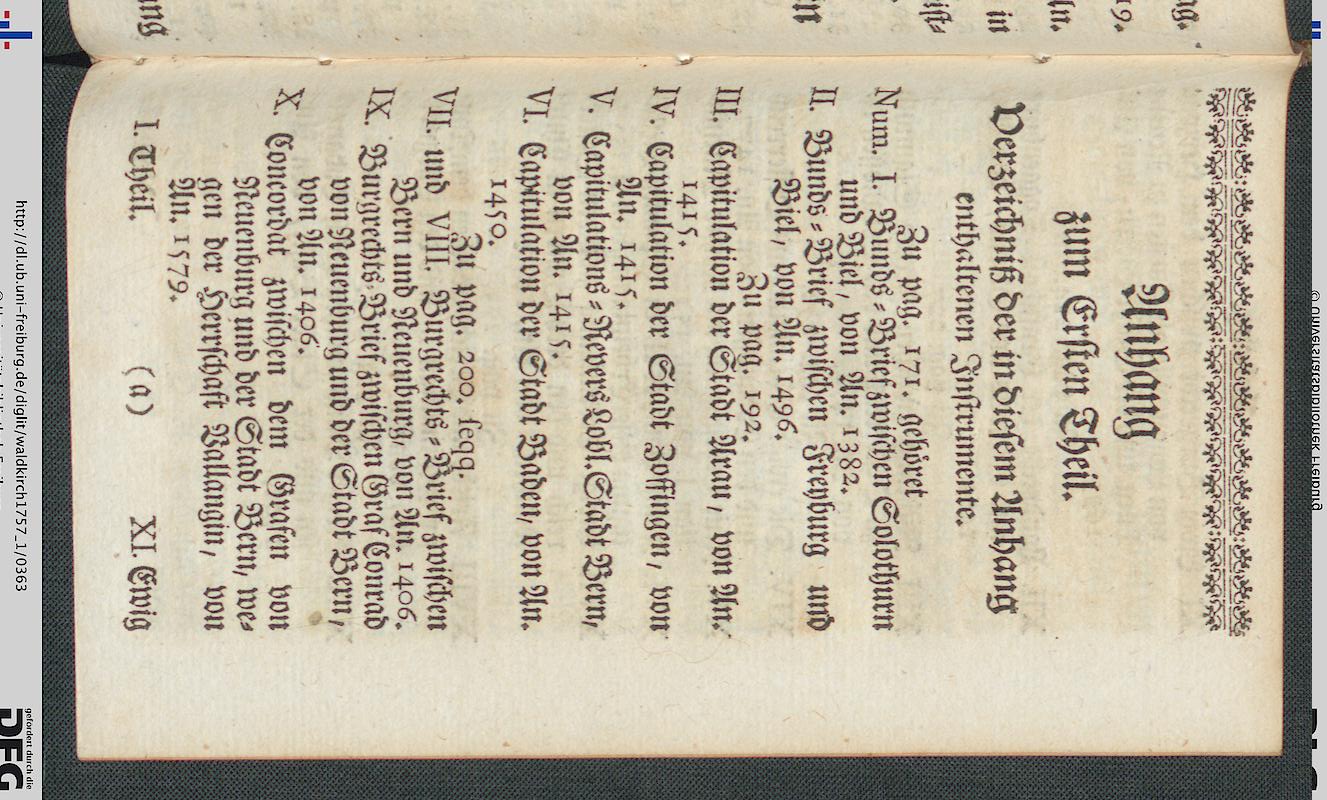 Anhang
zum Ersten Theil.
Verzeichniß der in diesem Anhang
enthaltenen Instrumente.
Zu pag. 171. gehöret
Num. I. Bunds-Brief zwischen Solothurn
und Biel, von An. 1382.
II. Bunds-Brief zwischen Freyburg und
Biel, von An. 1496.
Zu pag. 192.
III. Capitulation der Stadt Arau, von An.
1415.
IV. Capitulation der Stadt Zoffingen, von
An. 1415.
V. Capitulations-Revers Lobl. Stadt Bern,
von An. 1415.
VI. Capitulation der Stadt Baden, von An.
1450.
Zu pag. 200. seqq.
VII. und VIII. Burgrechts-Brief zwischen
Bern und Neuenburg, von An. 1406.
IX. Burgrechts-Brief zwischen Graf Conrad
von Neuenburg und der Stadt Bern,
von An. 1406.
X. Concordat zwischen dem Grafen von
Neuenburg und der Stadt Bern, we-
gen der Herrschaft Vallangin, von
An. 1579.
I. Theil. (a) XI Ewig
ng.
19.
ln.
in
ist-
in
ung
http://dl.ub.uni-freiburg.de/diglit/waldkirch1757_1/0363
gefördert durch die
DFG